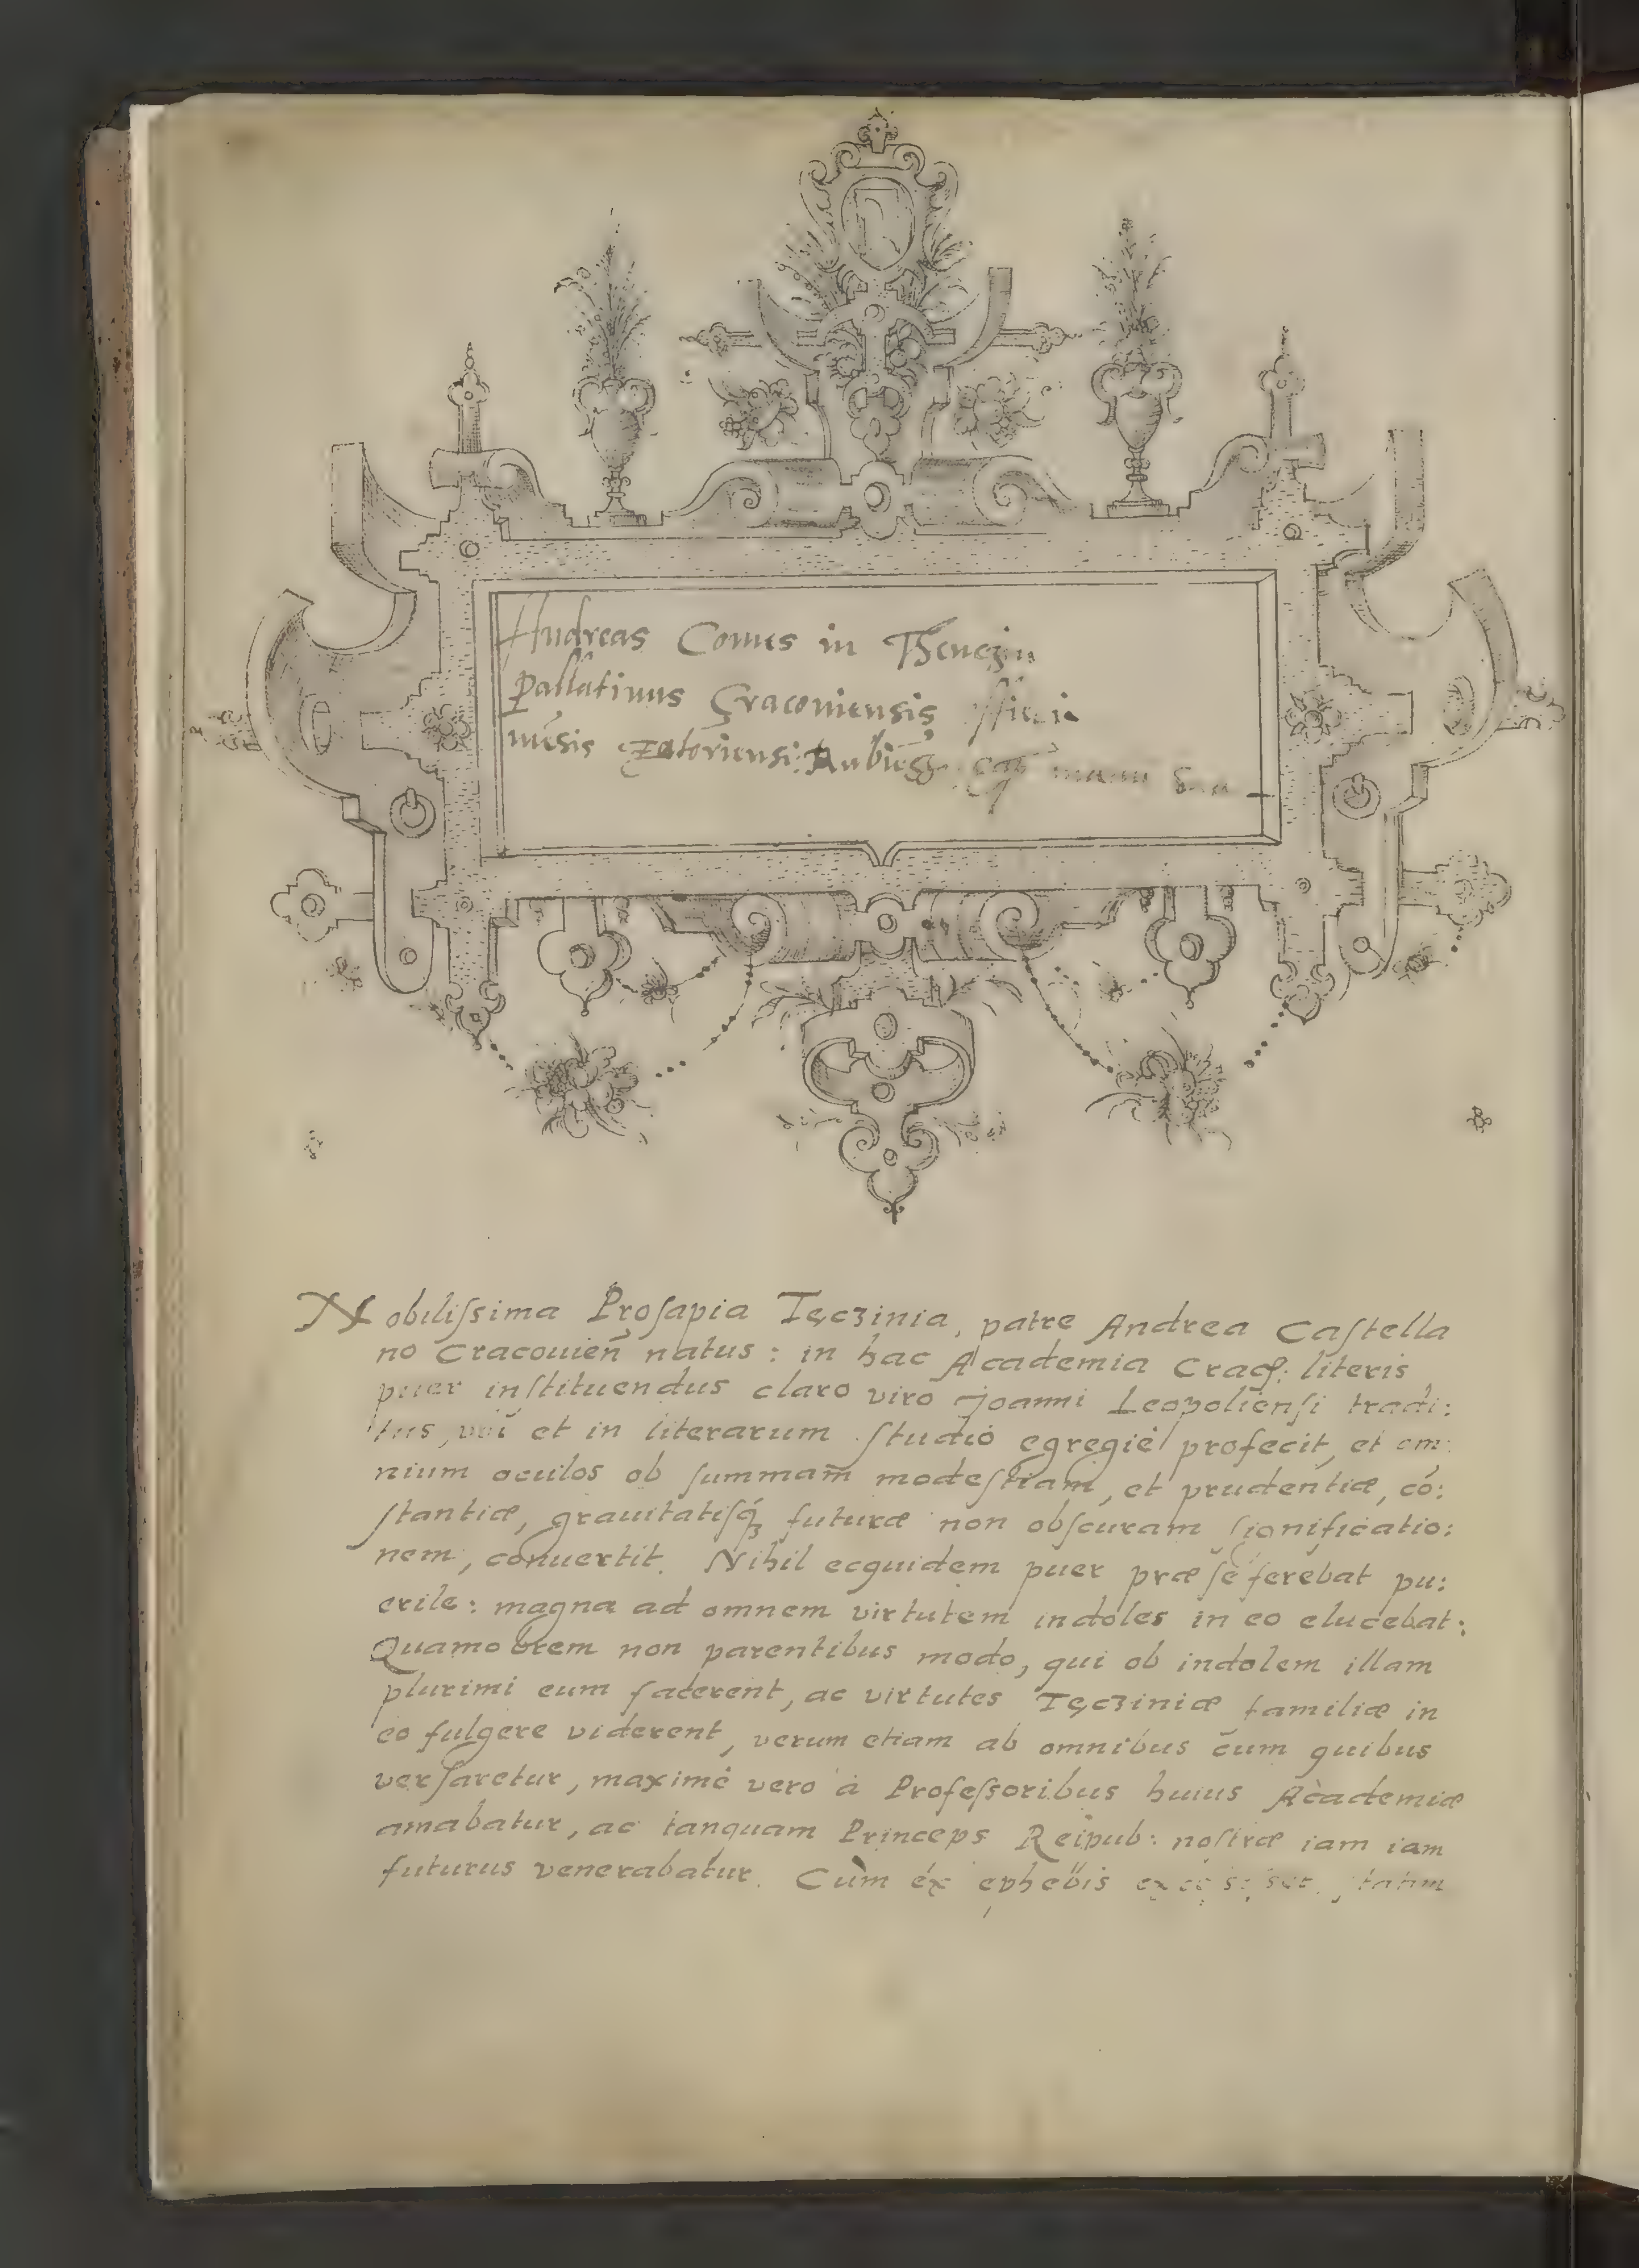 Andreas Comes in Thenczin
Pallatinus Cracouiensis
nēsis Zatoriensis manu
Nobiliſsima Proſapia Tęcʒinia, patre Andrea Caſtella
no Cracouieñ natus: in hac Academia Crac: literis
puer inſtituendus claro viro Joanni Leopolienſi tradi:
tus, et in literarum ſtudio egregiè profecit, et om:
nium oculos ob ſummam modeſtiam, et prudentiæ, có:
ſtantiæ, grauitatiſq́ʒ futuræ non obſcuram ſignificatio:
nem, conuertit. Nihil ecquidem puer præ ſe ferebat pu:
erile: magna ad omnem virtutem indoles in eo elucebat:
Quamobrem non parentibus modo, qui ob indolem illam
plurimi eum facerent, ac virtutes Tęcʒiniæ familiæ in
eo fulgere viderent, verum etiam ab omnibus cum quibus
verſaretur, maximè vero à Profeſsoribus huius Academiæ
amabatur, ac tanquam Princeps Reipub: noſtræ iam iam
futurus venerabatur. Cùm éx ephebis